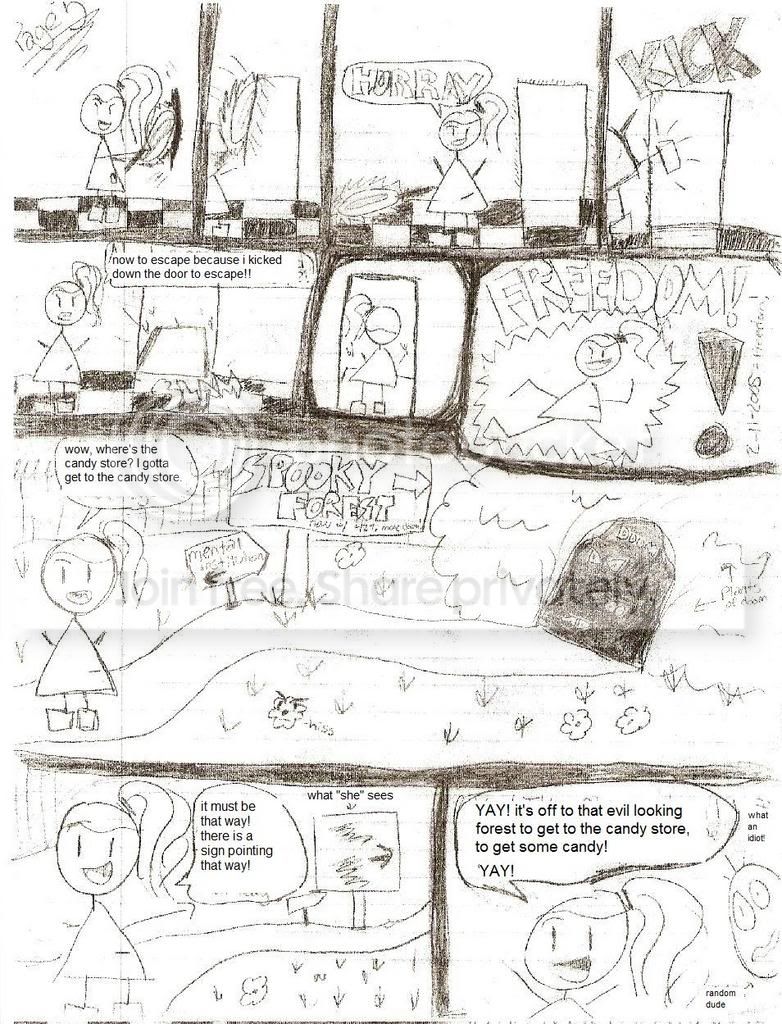 Page 5
HURRAY
KICK
now to escape because i kicked
down the door to escape!!
SLAM
FREEDOM!
2-11-2005
wow, where's the
candy store? I gotta
get to the candy store.
SPOOKY
FOREST
now w/ 42% more doom
mental
institution
Doom
Plants
of doom
hiss
photobucket
Join free. Share privately.
it must be
that way!
there is a
sign pointing
that way!
what "she" sees
YAY! it's off to that evil looking
forest to get to the candy store,
to get some candy!
YAY!
what
an
idiot!
random
dude